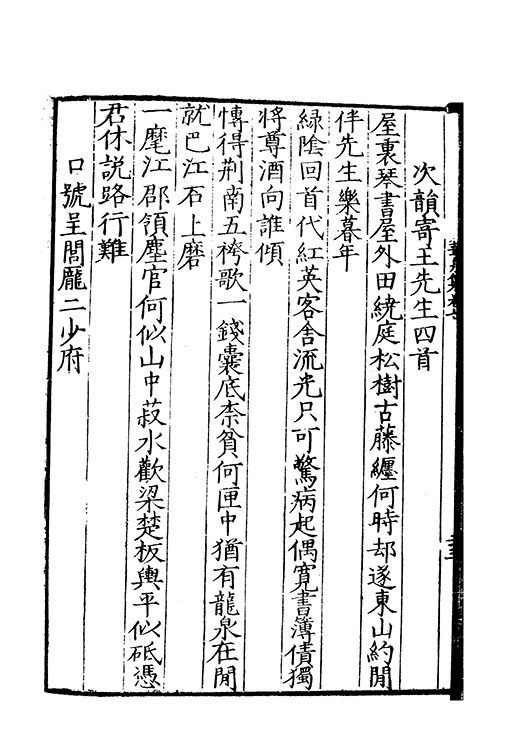 次韻寄王先生四首
屋裏琴書屋外田繞庭松樹古藤纏何時却遂東山約閒
伴先生樂暮年
綠陰回首代紅英客舍流光只可驚病起偶寬書簿債獨
將尊酒向誰傾
慱得荆南五袴歌一錢囊底柰貧何匣中猶有龍泉在閒
就巴江石上磨
一麾江郡領塵官何似山中菽水歡梁楚板輿平似砥憑
君休說路行難
口號呈閻龐二少府